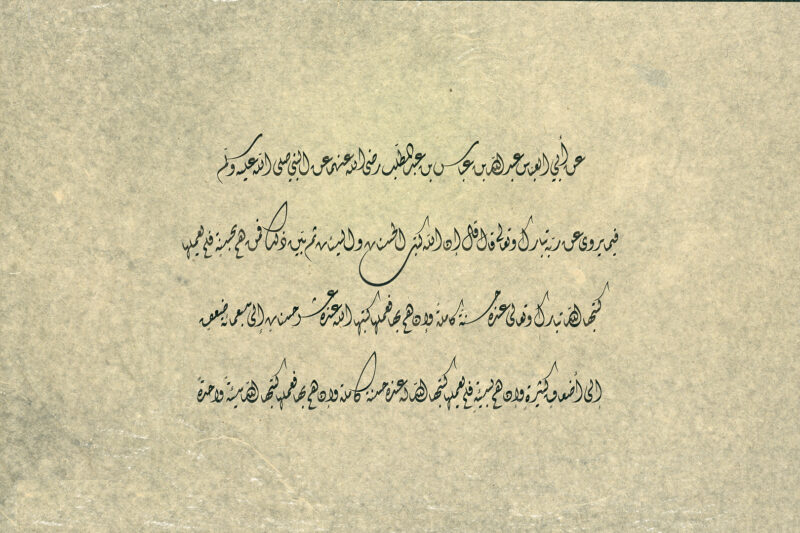 عن أبي العباس عبد الله بن عباس بن عبد المطلب رضي الله عنهما عن النبي صلى الله عليه وسلم
فيما يروي عن ربه تبارك وتعالى قال قال إن الله كتب الحسنات والسيئات ثم بين ذلك فمن هم بحسنة فلم يعملها
كتبها الله تبارك وتعالى عنده حسنة كاملة وإن هم بها فعملها كتبها الله عنده عشر حسنات إلى سبعمائة ضعف
إلى أضعاف كثيرة وإن هم بسيئة فلم يعملها كتبها الله له عنده حسنة كاملة وإن هم بها فعملها كتبها الله سيئة واحدة